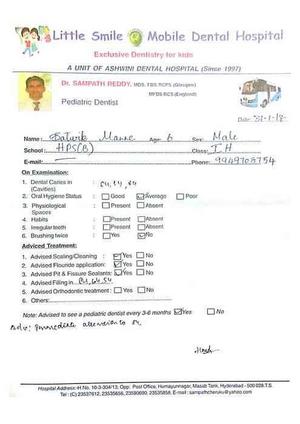 Little Smile Mobile Dental Hospital
Exclusive Dentistry for kids
A UNIT OF ASHWINI DENTAL HOSPITAL (Since 1997)
Dr. SAMPATH REDDY, MDS. FDS RCPS (Glasgow)
MFDS RCS (England)
Pediatric Dentist
Date: 31-1-18
Name: Satwik Manne Age: 6 Sex: Male
School: HPS(B) Class: I H
E-mail: Phone: 9949708754
On Examination:
1. Dental Caries in (Cavities) :
2. Oral Hygiene Status : Good Average Poor
3. Physiological Spaces : Present Absent
4. Habits : Present Absent
5. Irregular teeth : Present Absent
6. Brushing twice : Yes No
Adviced Treatment:
1. Advised Scaling/Cleaning : Yes No
2. Advised Flouride application: Yes No
3. Advised Pit & Fissure Sealants: Yes No
4. Advised Filling in
5. Advised Orthodontic treatment : Yes No
6. Others:
Note: Advised to see a pediatric dentist every 3-6 months Yes No
Adv: Immediate attention to
Hospital Address: H.No. 10-3-304/13, Opp: Post Office, Humayunnagar, Masab Tank, Hyderabad - 500 028.T.S.
Tel : (C) 23537612, 23535656, 23590690, 23535858. E-mail : sampathcheruku@yahoo.com